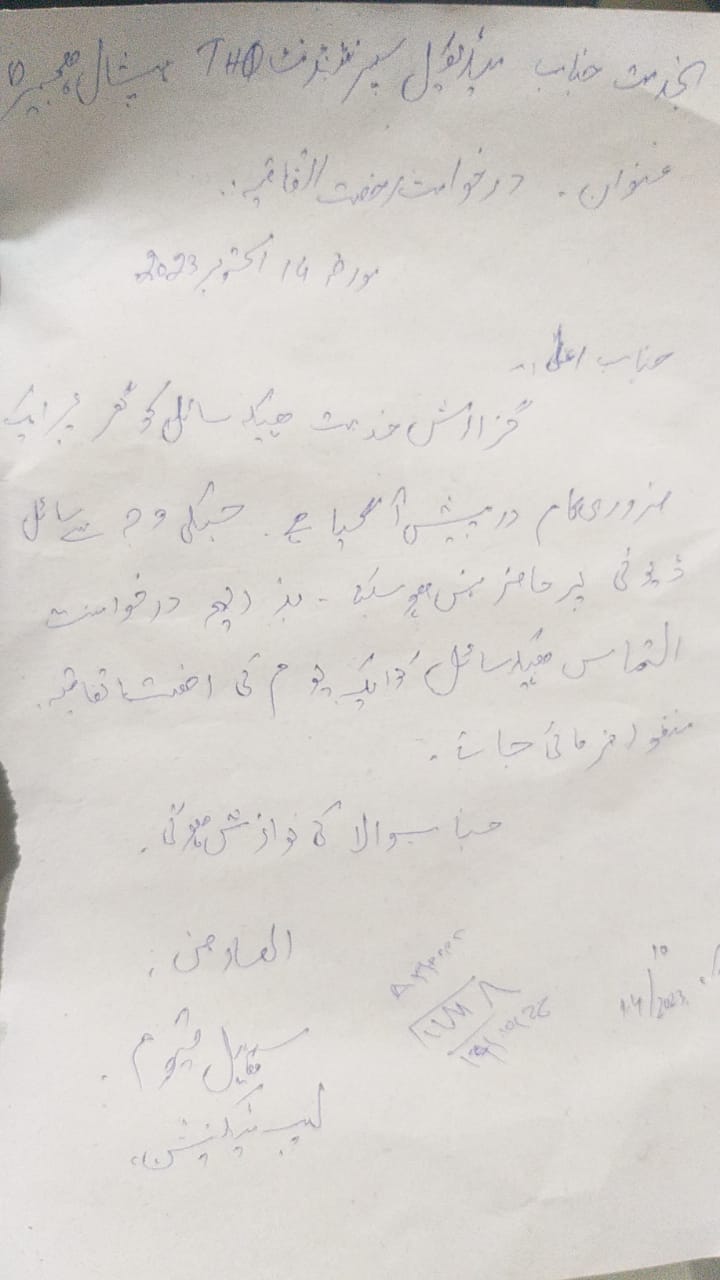 بخدمت جناب میڈیکل سپرنٹنڈنٹ THQ ہسپتال ہجیرہ
عنوان۔ درخواست رخصت اتفاقیہ۔
مورخہ 14 اکتوبر 2023
جناب اعلیٰ۔
گزارش خدمت ھیکہ سائل کو گھر پر ایک
ضروری کام درپیش آ گیا ہے۔ جسکی وجہ سے سائل
ڈیوٹی پر حاضر نہیں ہو سکتا۔ بذریعہ درخواست
التماس ھیکہ سائل کو ایک یوم کی رخصت اتفاقیہ
منظور فرمائی جائے۔
جناب والا کی نوازش ہو گی۔
العارض:
سہیل قیوم۔
لیب ٹیکنیشن۔
14/10/2023